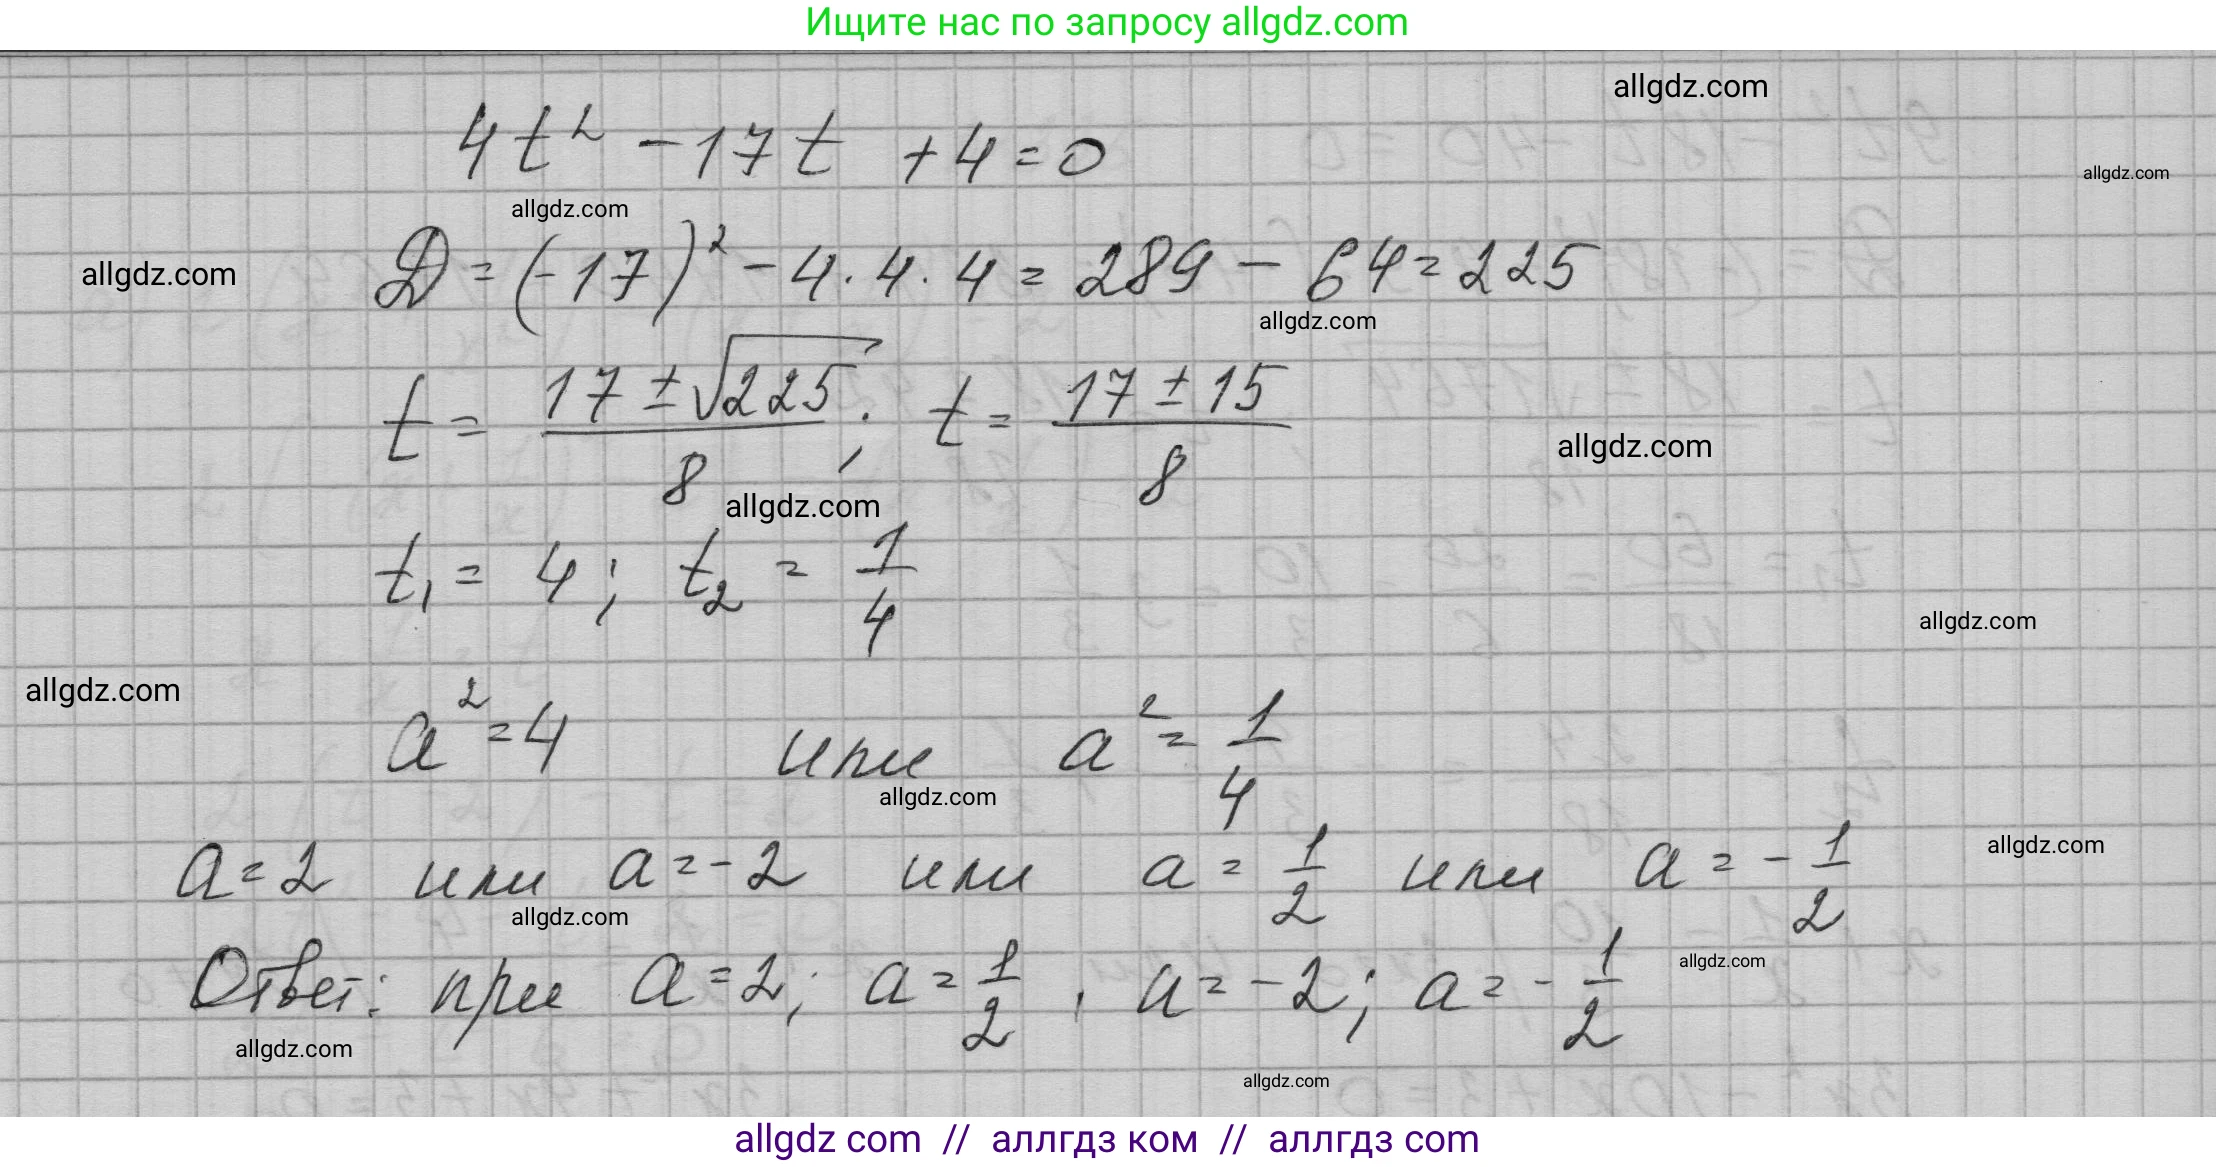 Ищите нас по запросу allgdz.com
allgdz.com
4t² - 17t + 4 = 0
allgdz.com
allgdz.com
allgdz.com
D = (-17)² - 4 · 4 · 4 = 289 - 64 = 225
allgdz.com
t = (17 ± √225)/8 ; t = (17 ± 15)/8
allgdz.com
allgdz.com
t₁ = 4 ; t₂ = 1/4
allgdz.com
allgdz.com
a² = 4 или a² = 1/4
allgdz.com
a = 2 или a = -2 или a = 1/2 или a = -1/2
allgdz.com
allgdz.com
Ответ: при a = 2; a = 1/2, a = -2; a = -1/2
allgdz.com
allgdz.com
allgdz.com
allgdz com // аллгдз ком // аллгдз com